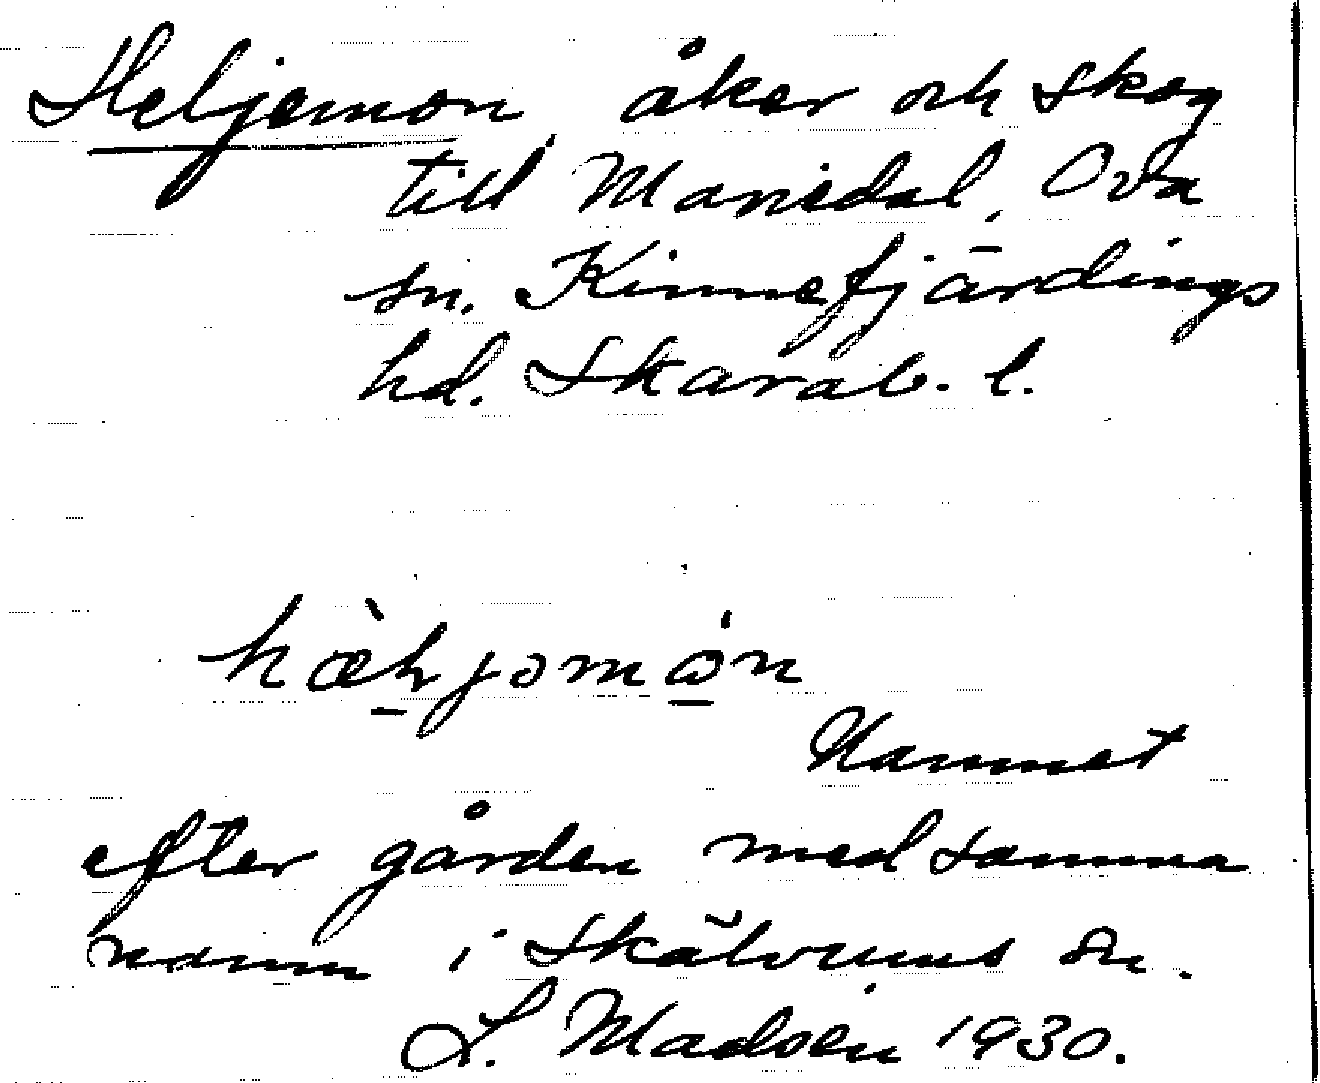 Heljemon, åker och skog
till Mariedal, Ova
sn. Kinnefjärdings
hd. Skarab. l.
Namnet
efter gården med samma
namn i Skälvums sn.
L. Madsén 1930.